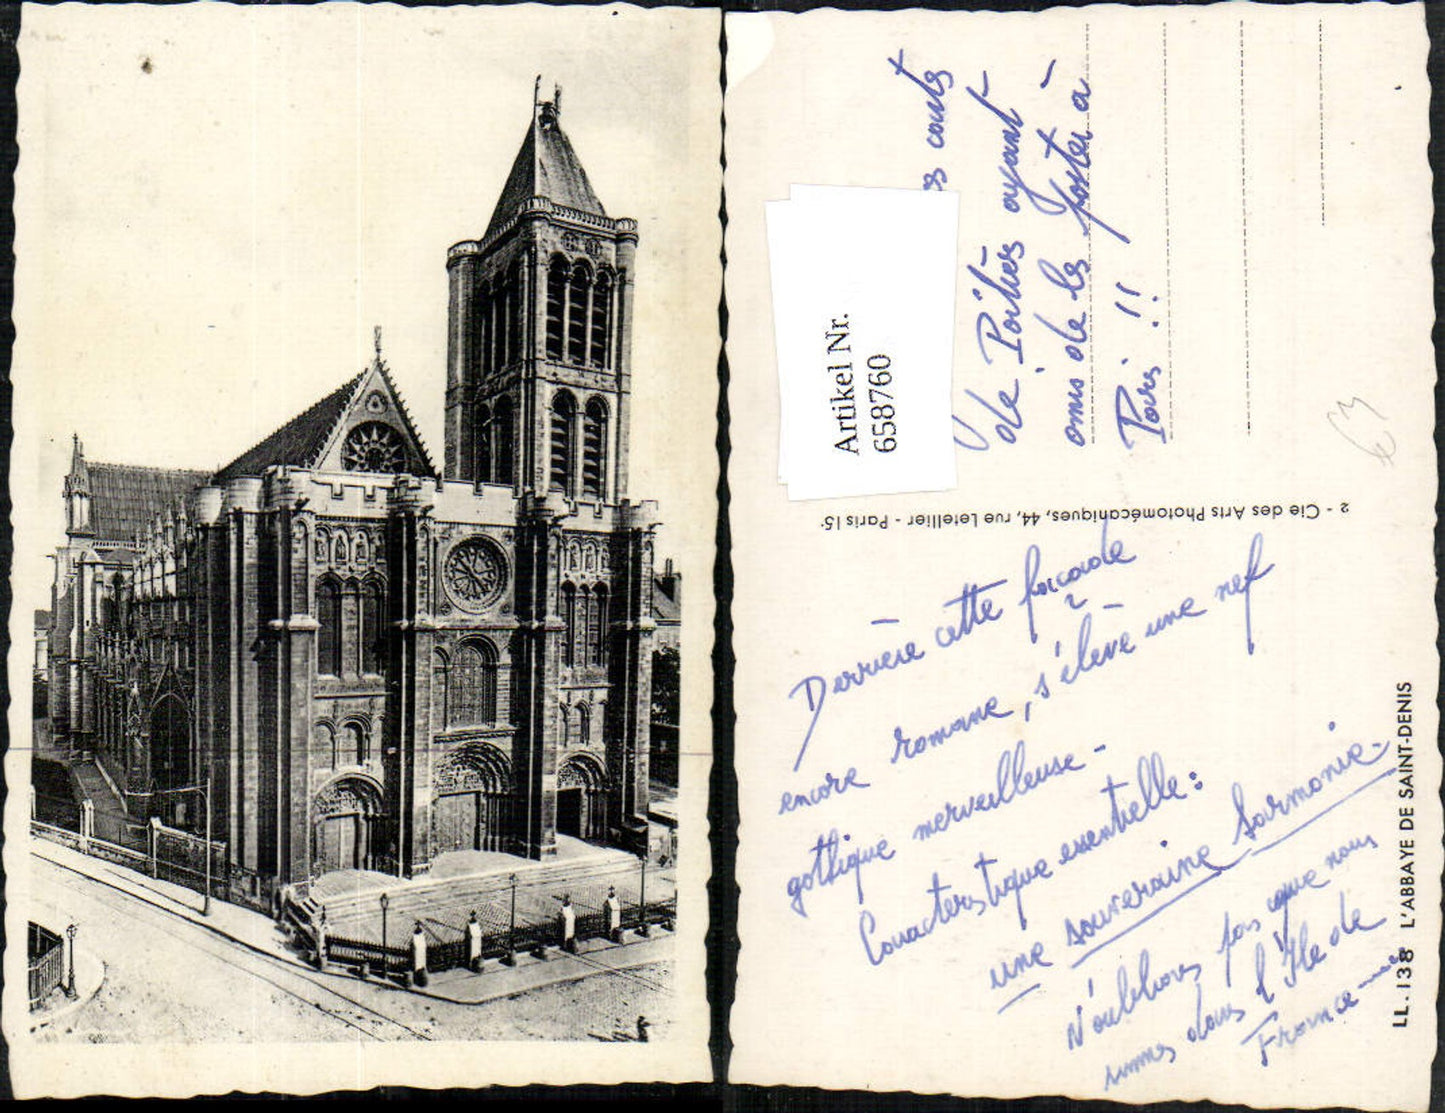 Artikel Nr.
658760
cents
de Poitiers ayant
omis de les poster à
Paris !!
2 - Cie des Arts Photomécaniques, 44, rue Letellier - Paris 15ᵉ
Derrière cette façade
encore romane, s'élève une nef
gothique merveilleuse -
Caractéristique essentielle :
une souveraine harmonie -
N'oublions pas que nous
sommes dans l'Île de
France -
LL. 138 L'ABBAYE DE SAINT-DENIS